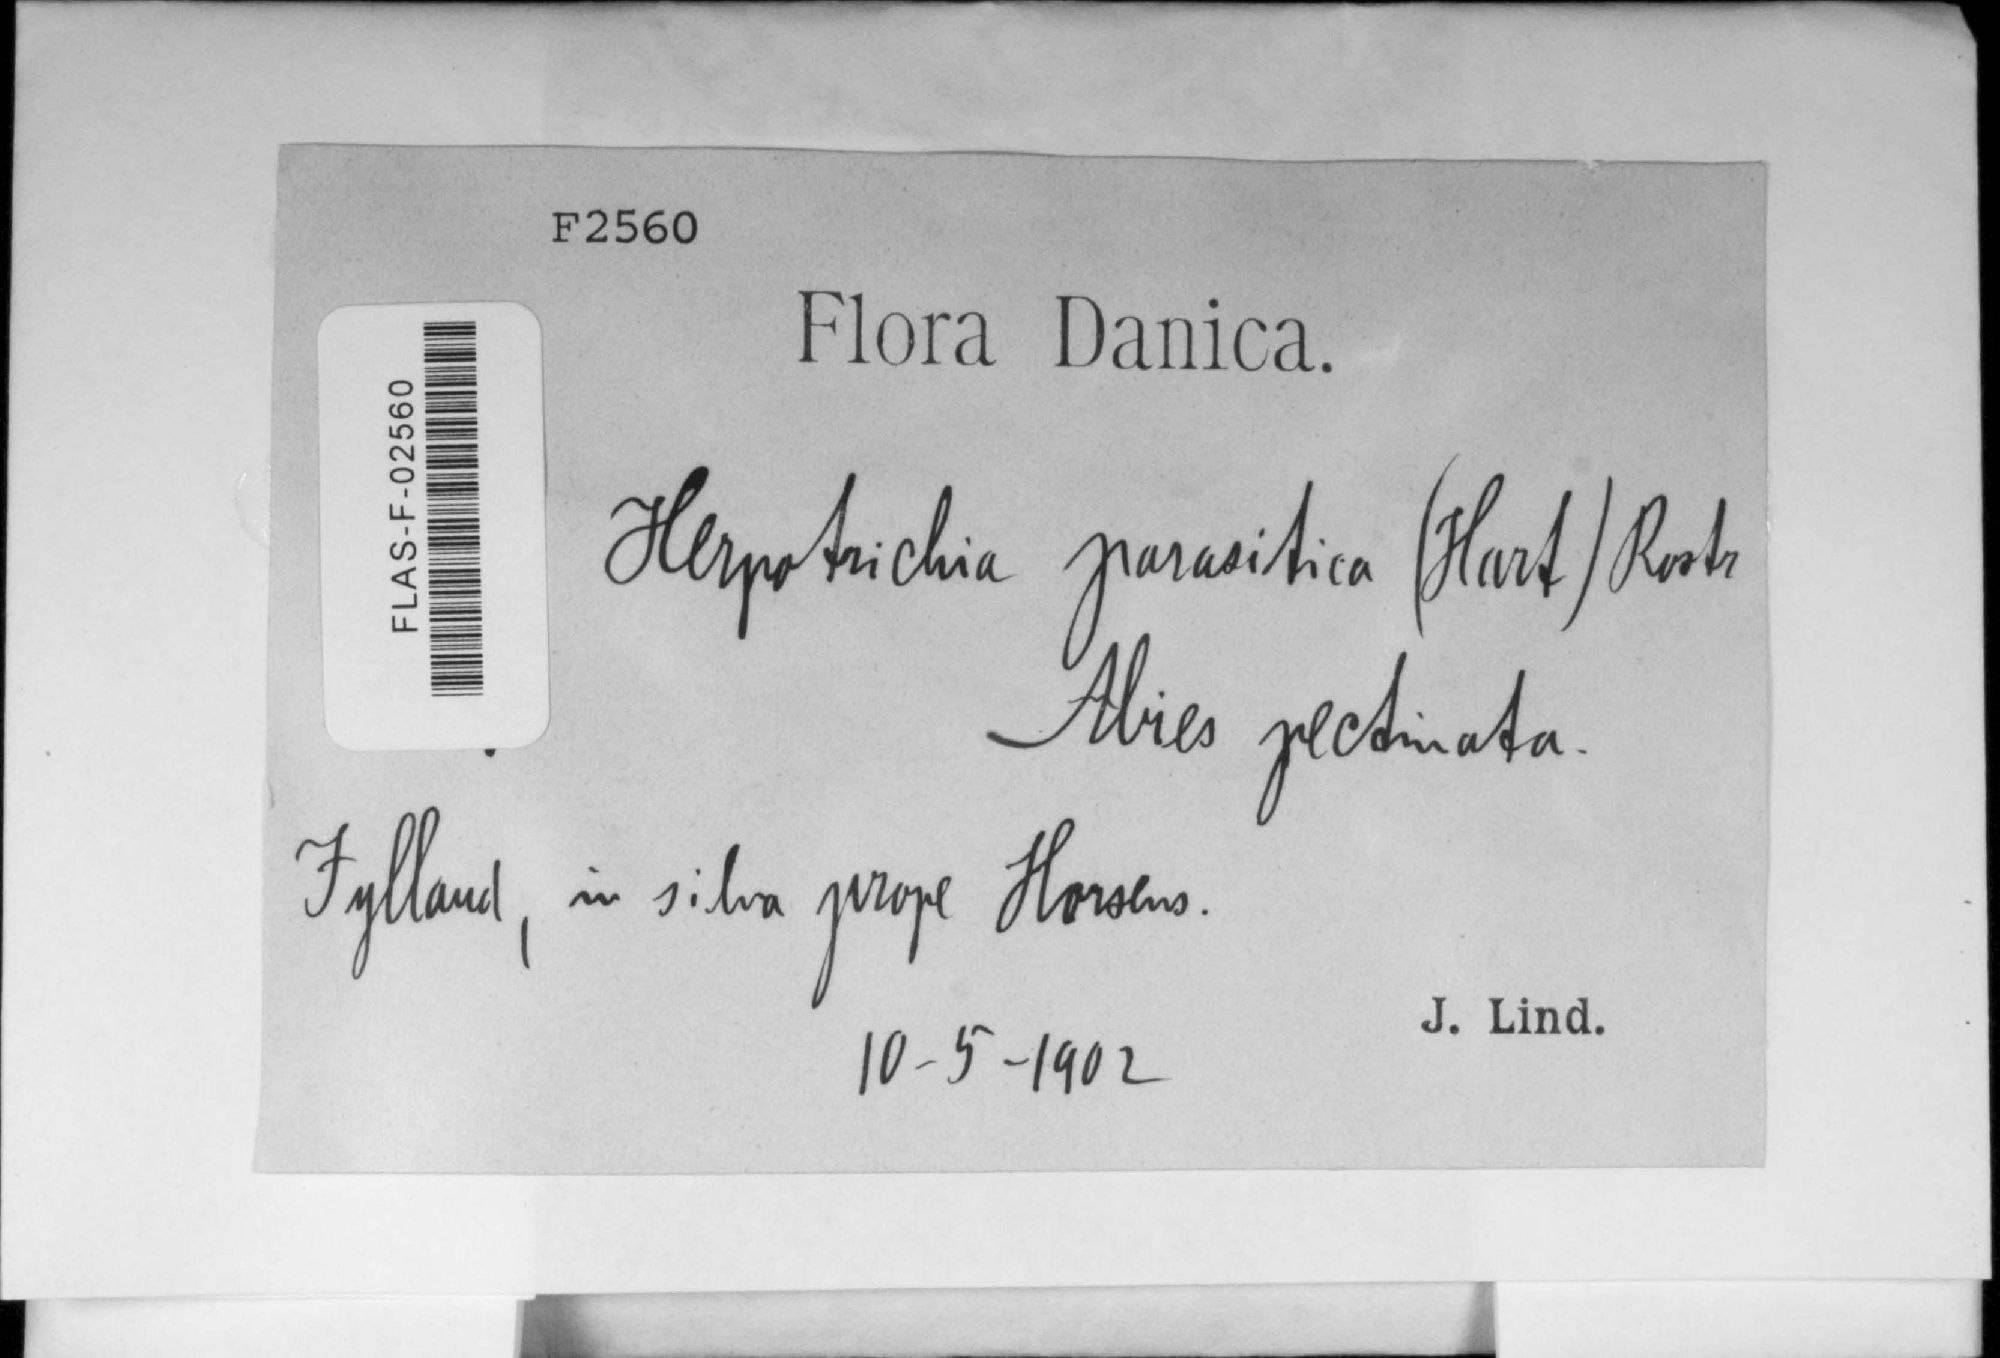 F2560
Flora Danica.
FLAS-F-02560
Herpotrichia parasitica (Hart) Rostr
Abies pectinata.
Jylland, in silva prope Horsens.
J. Lind.
10-5-1902